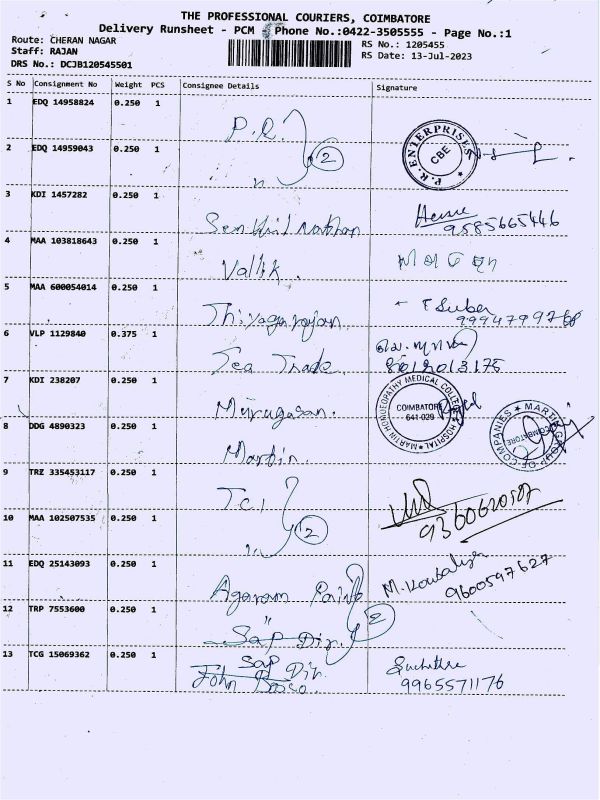 THE PROFESSIONAL COURIERS, COIMBATORE
Delivery Runsheet - PCM Phone No.:0422-3505555 - Page No.:1
Route: CHERAN NAGAR
Staff: RAJAN
DRS No.: DCJB120545501
RS No.: 1205455
RS Date: 13-Jul-2023
S No Consignment No Weight PCS Consignee Details Signature
1 EDQ 14958824 0.250 1 P.R.
2 EDQ 14959043 0.250 1 " 2 P.R. ENTERPRISES CBE
3 KDI 1457282 0.250 1 Senthil Nathan 9585665446
4 MAA 103818643 0.250 1 Vallik.
5 MAA 600054014 0.250 1 Thiyagarajan T Suber
6 VLP 1129840 0.375 1 Tea Trade
7 KDI 238207 0.250 1 Murugasan. MARTIN HOMOEOPATHY MEDICAL COLLEGE HOSPITAL COIMBATORE 641 029
8 DDG 4890323 0.250 1 Martin. MARTIN GROUP OF COMPANIES COIMBATORE
9 TRZ 335453117 0.250 1 TCI
10 MAA 102507535 0.250 1 " 2 9360620587
11 EDQ 25143093 0.250 1 Agaram M. Kousalya 9600597627
12 TRP 7553600 0.250 1 " 2
13 TCG 15069362 0.250 1 John Bosco. Suchithra 9965571176